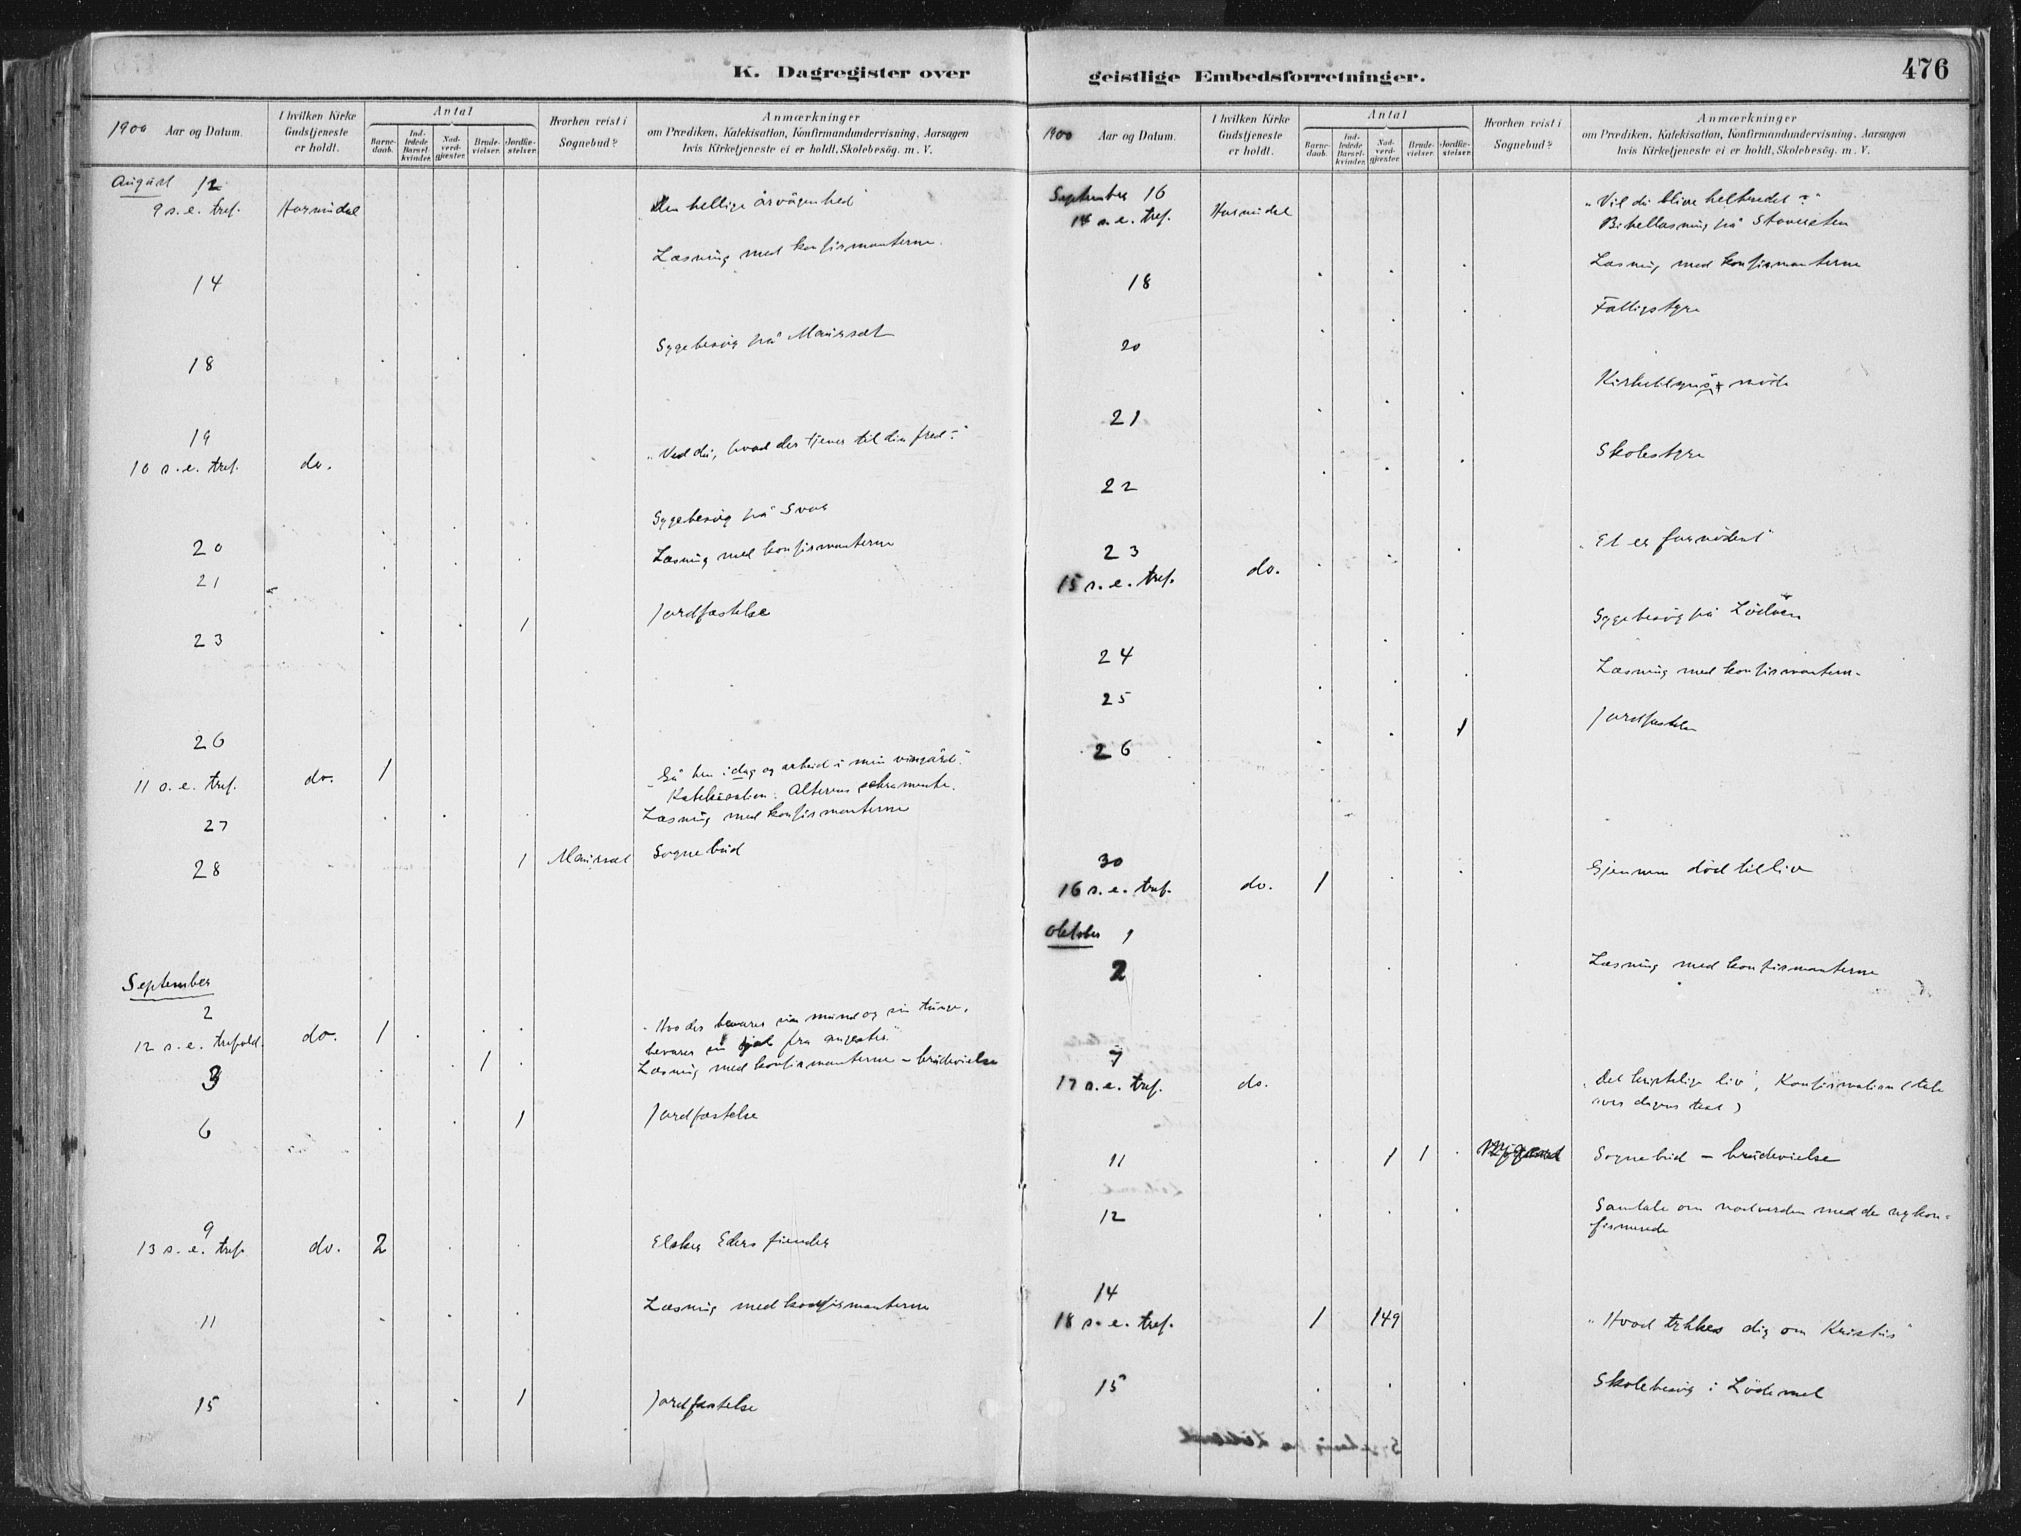 K. Dagregister over
1900 Aar og Datum.
I hvilken Kirke Gudstjeneste er holdt.
Antal
Barnedaab.
Indledede Barselkvinder.
Nadverdgjæster.
Brudevielser.
Jordfæstelser.
Hvorhen reist i Sognebud?
Anmærkninger
om Prædiken, Katekisation, Konfirmandundervisning, Aarsagen
hvis Kirketjeneste ei er holdt, Skolebesøg. m. V.
August 12
9 s. e. tref. Hornindal Den hellige årvågenhed
Læsning med konfirmanterne.
14
Sygebesøg på Maurset
18
19
10 s. e. tref. do. "Ved du, hvad der tjener til din fred?"
Sygebesøg på Svor
20
Læsning med konfirmanterne
21
Jordfæstelse
23 1
26
11 s. e. tref. do. 1 "Gå hen idag og arbeid i min vingård".
Katekisation: Alterens sakramente.
27 Læsning med konfirmanterne
28 1 Maurset Sognebud
September
2
12 s. e. trefold. do. 1 "Hvo der bevarer sin mund og sin tunge,
bevarer sin sjæl fra angester"
3 1 Læsning med konfirmanterne - brudevielse
6 1 Jordfæstelse
9
13 s. e. tref. do. 2 Elsker Eders fiender
11 Læsning med konfirmanterne
15 1 Jordfæstelse
geistlige Embedsforretninger.
476
1900 Aar og Datum.
I hvilken Kirke Gudstjeneste er holdt.
Antal
Barnedaab.
Indledede Barselkvinder.
Nadverdgjæster.
Brudevielser.
Jordfæstelser.
Hvorhen reist i Sognebud?
Anmærkninger
om Prædiken, Katekisation, Konfirmandundervisning, Aarsagen
hvis Kirketjeneste ei er holdt, Skolebesøg. m. V.
September 16 "Vil du blive helbredet?"
14 s. e. tref. Hornindal Bibellæsning på
Læsning med konfirmanterne
18
Fattigstyre
20
møde
21
Skolestyre
22
"Et er fornødent"
23
15 s. e. tref. do.
Sygebesøg på
24
Læsning med konfirmantern.
25
Jordfæstelse
26 1
30 Gjennem død til liv
16 s. e. tref. do. 1
Oktober 1
2 Læsning med konfirmanterne
7
17 s. e. tref. do. "Det kristelige liv", Konfirmation (tale
over dagens text)
11 1 1 Sognebud - brudevielse
12 Samtale om nadverden med de nykon-
firmerede
14
18 s. e. tref. 1 149 "Hvad tykkes dig om Kristus"
15 Skolebesøg i Lødemel